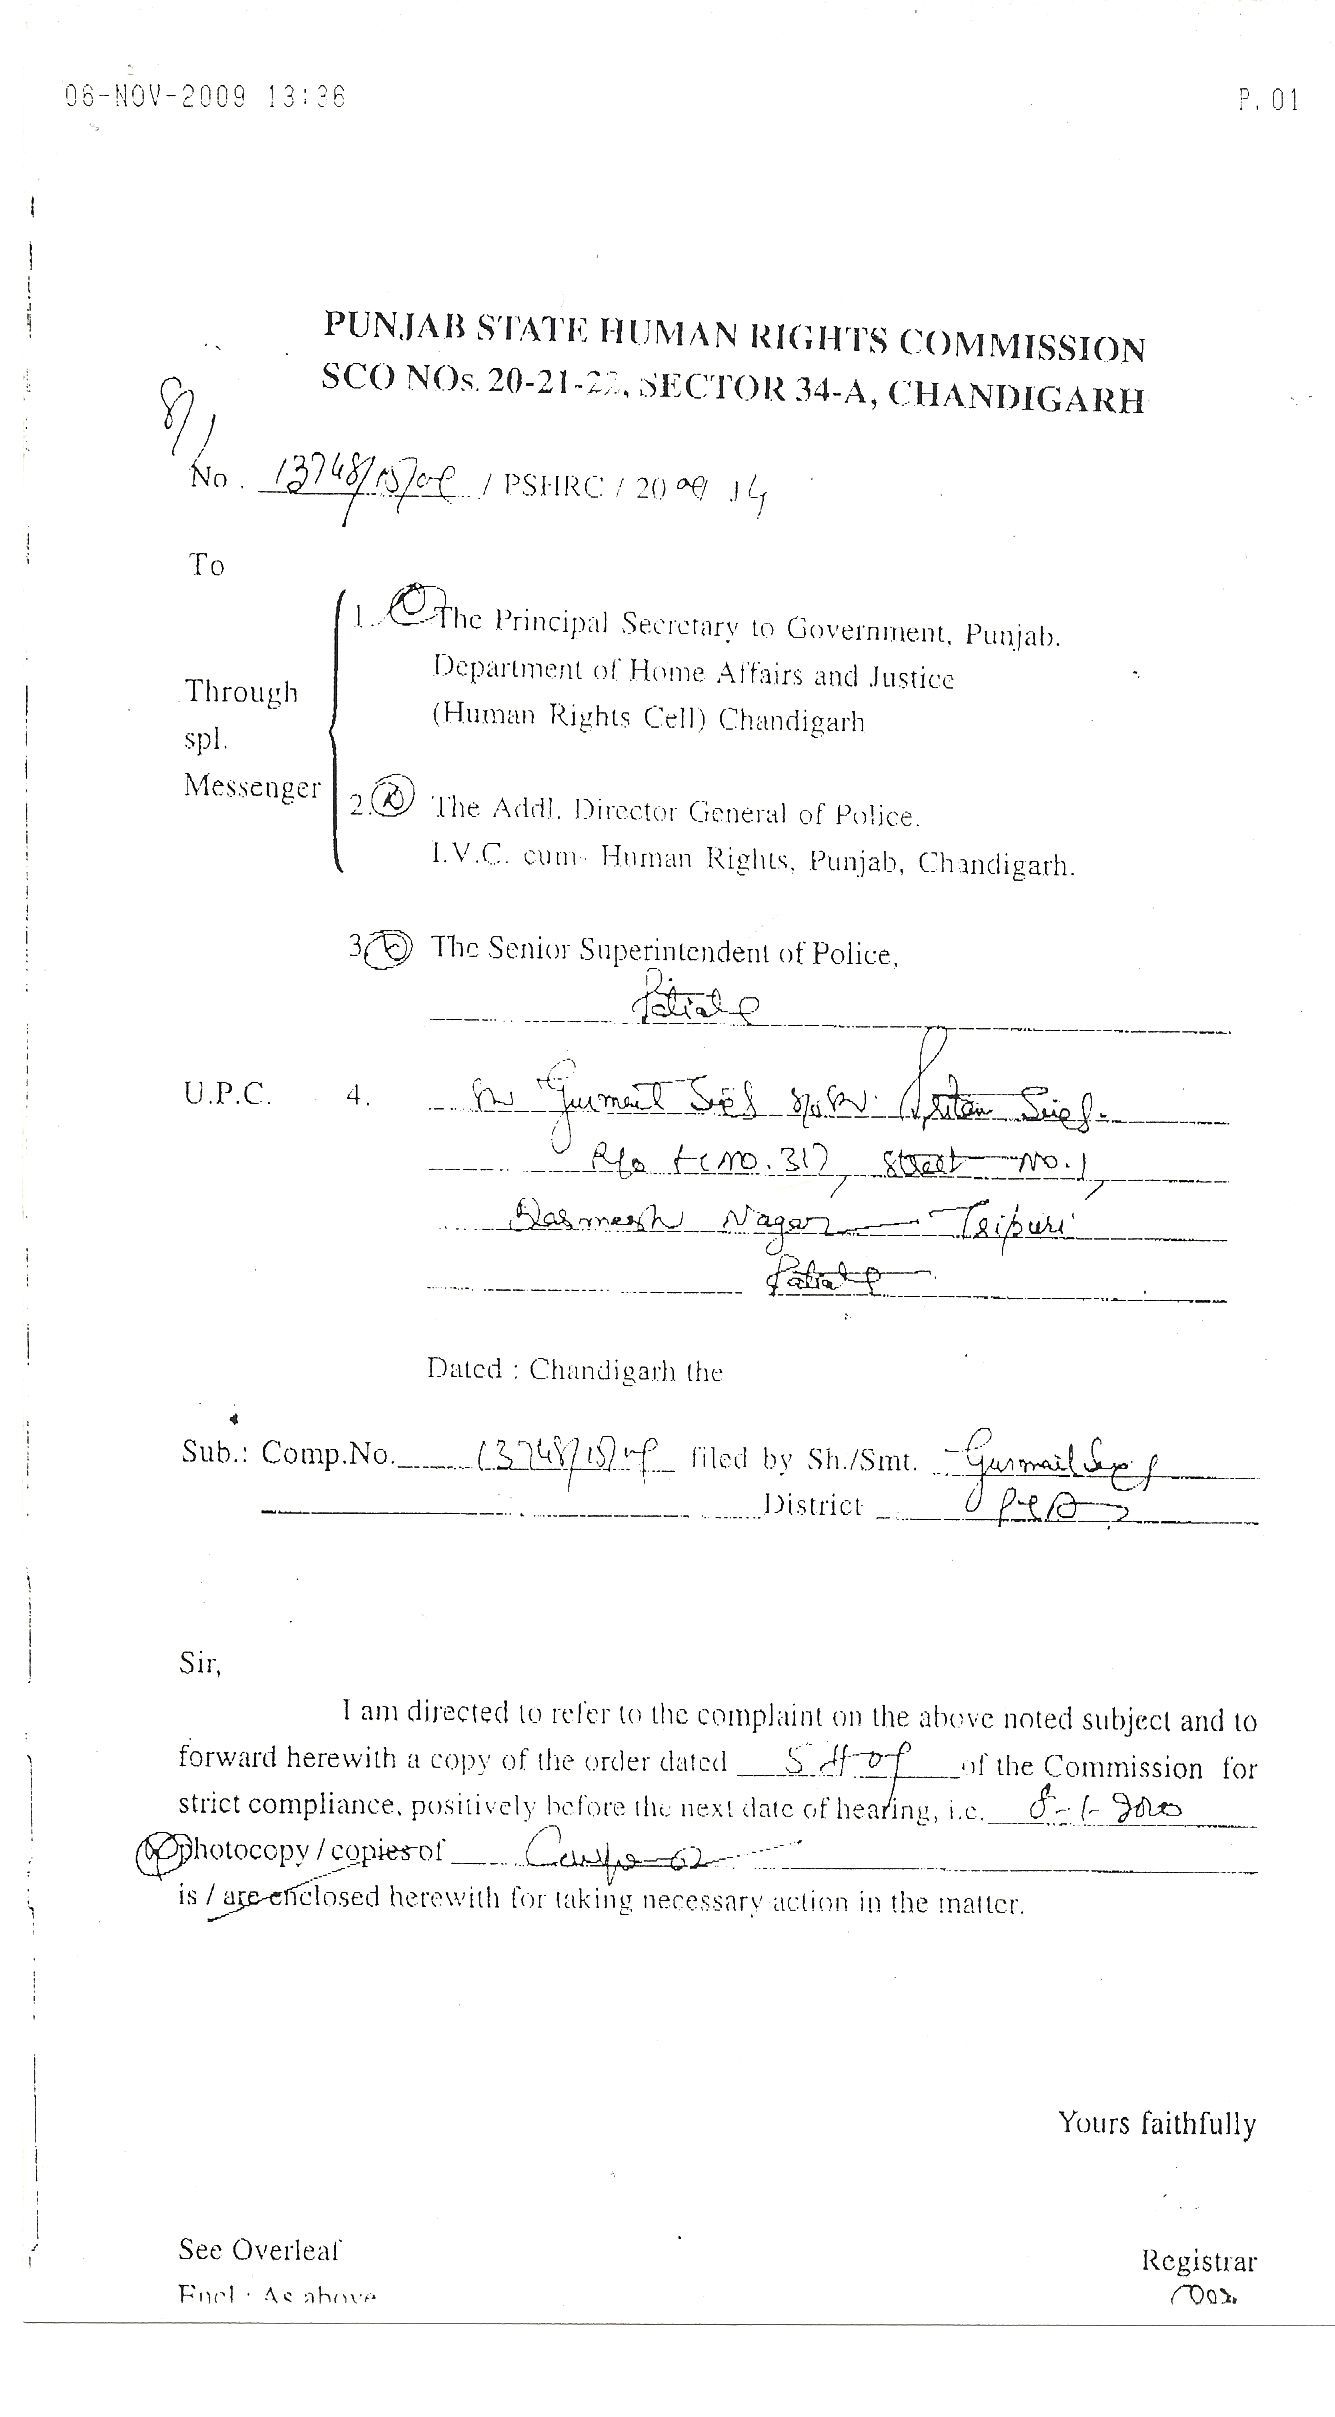 06-NOV-2009 13:36 P.01
PUNJAB STATE HUMAN RIGHTS COMMISSION
SCO NOs. 20-21-22, SECTOR 34-A, CHANDIGARH
No. 13748/15/09 / PSHRC / 2009 14
To
1. The Principal Secretary to Government, Punjab.
Department of Home Affairs and Justice
Through
(Human Rights Cell) Chandigarh
spl.
Messenger
2. The Addl. Director General of Police.
I.V.C. cum- Human Rights, Punjab, Chandigarh.
3. The Senior Superintendent of Police,
Patiala
U.P.C. 4. Sh Gurmail Singh S/o Sh. Singh
R/o H No. 317, Street No. 1,
Dasmesh Nagar Tripuri
Patiala
Dated : Chandigarh the
Sub.: Comp.No. 13748/15/09 filed by Sh./Smt. Gurmail Singh
District
Sir,
I am directed to refer to the complaint on the above noted subject and to
forward herewith a copy of the order dated of the Commission for
strict compliance, positively before the next date of hearing, i.e. 8-1-2010
photocopy / copies of
is / are enclosed herewith for taking necessary action in the matter.
Yours faithfully
See Overleaf
Registrar
Encl : As above